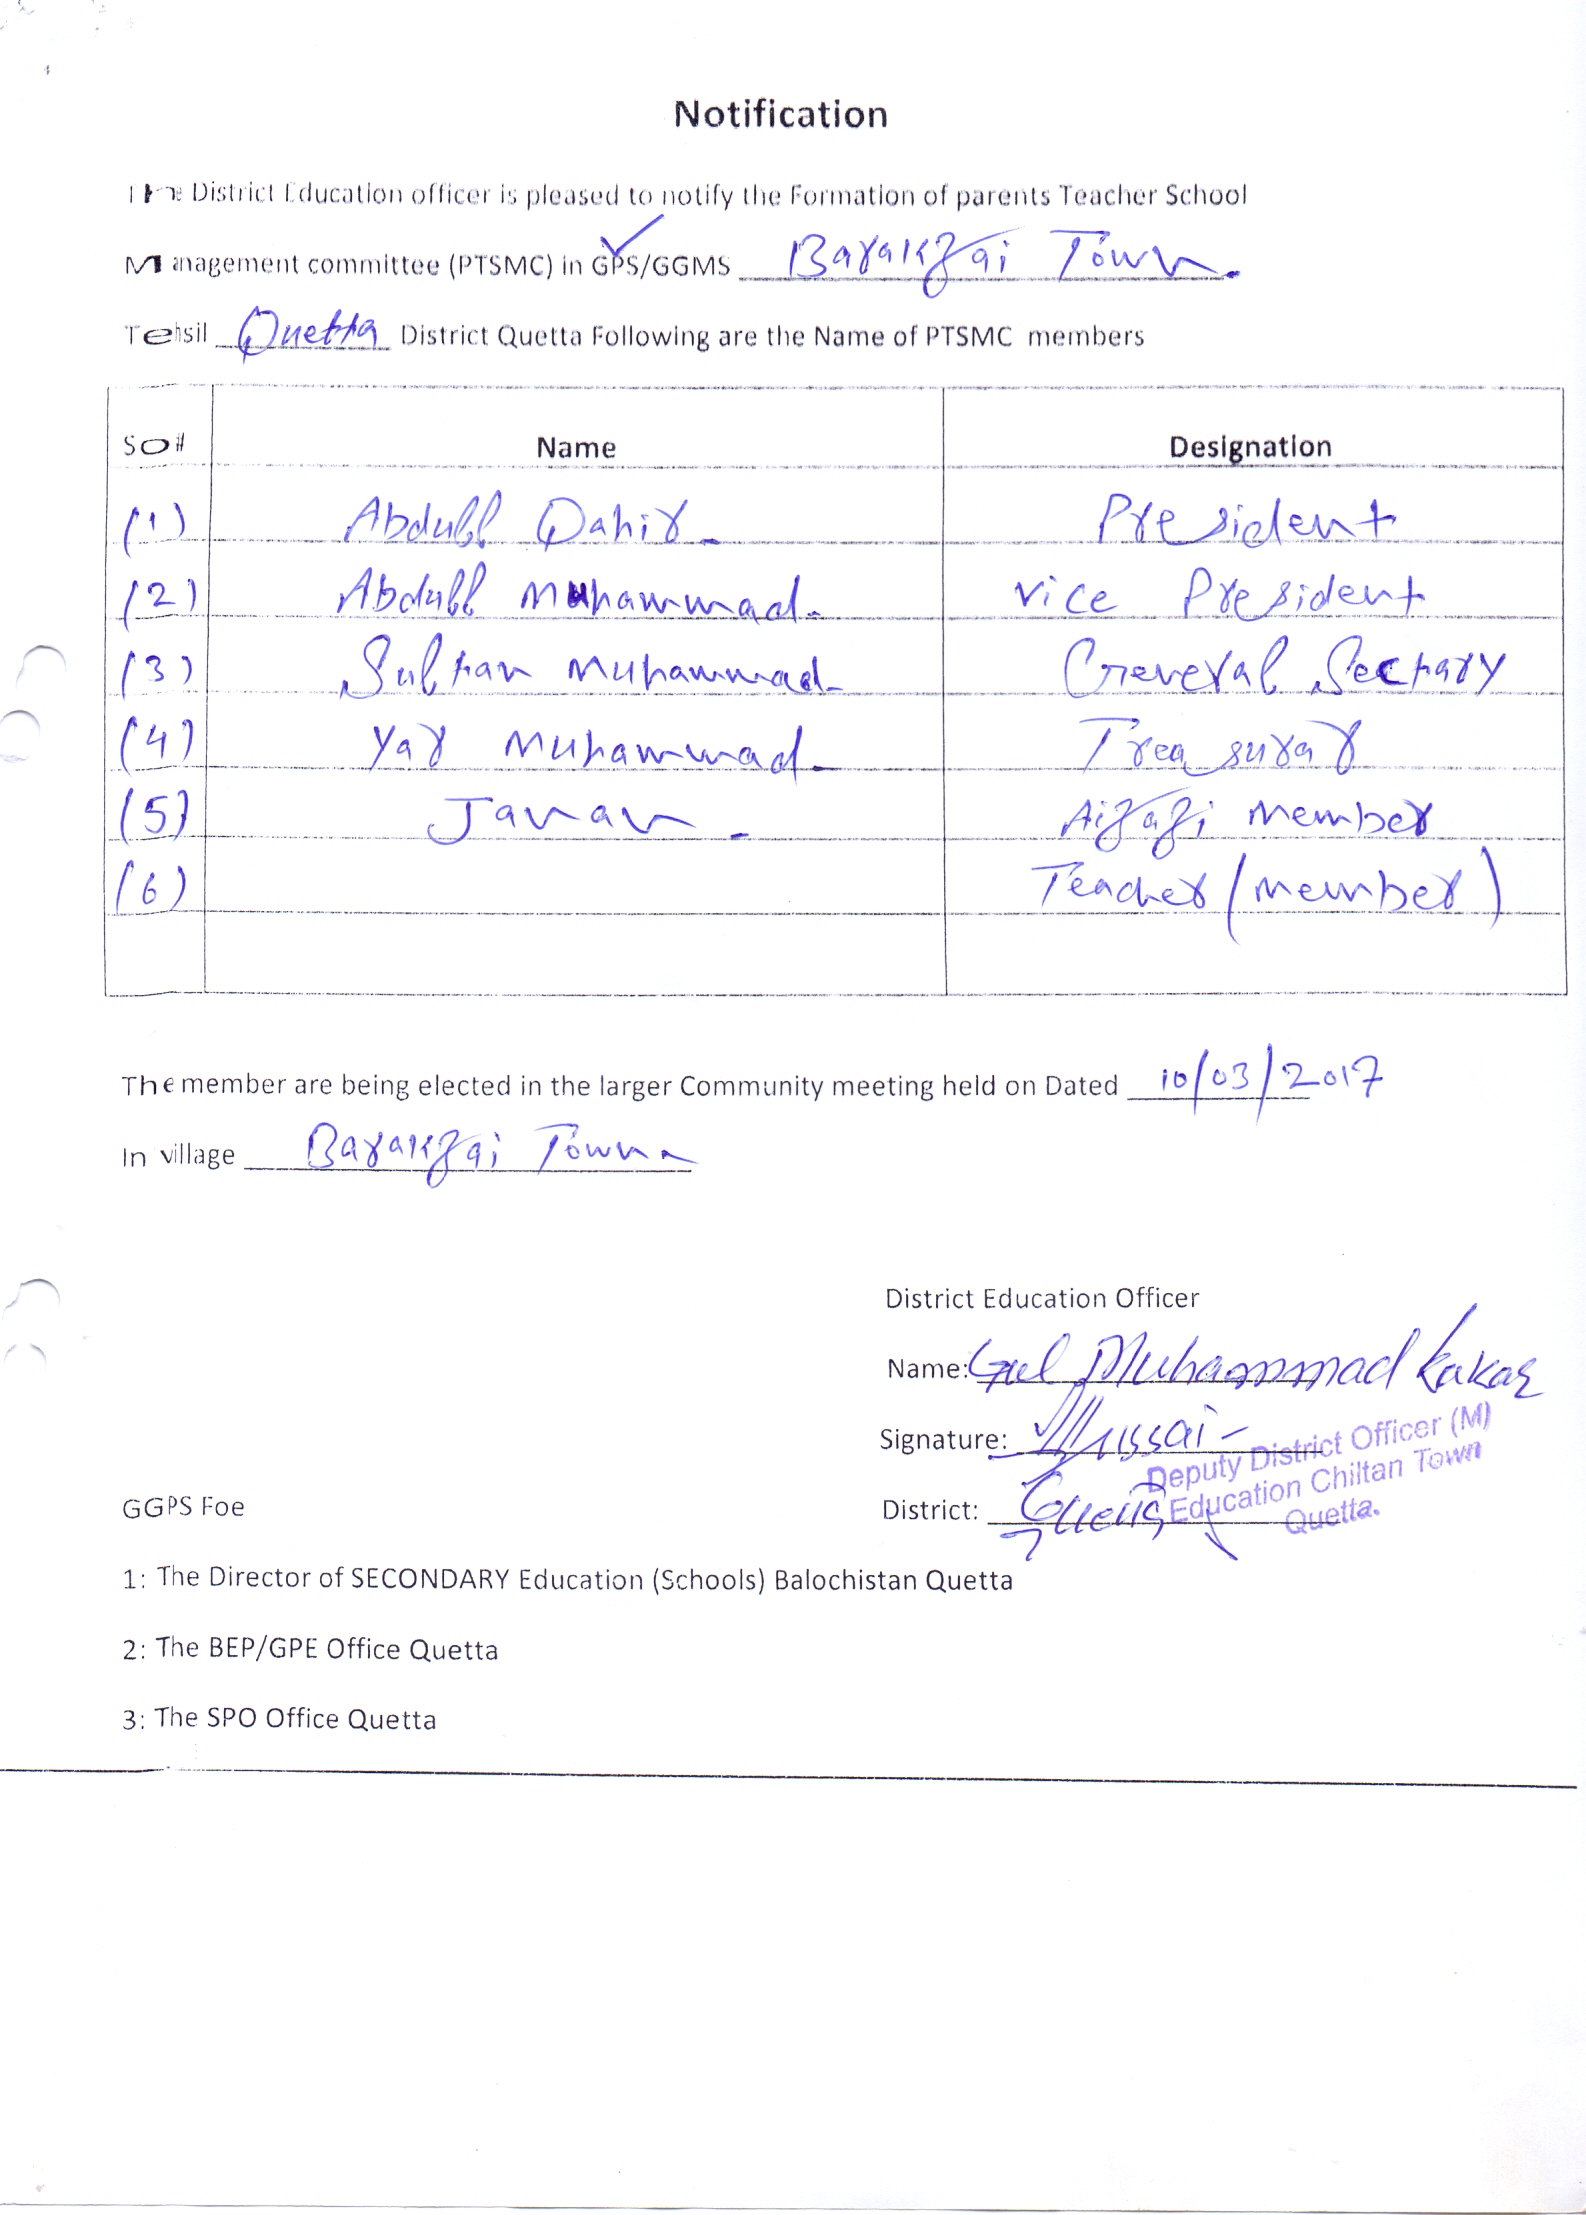 Notification
The District Education officer is pleased to notify the Formation of parents Teacher School
Management committee (PTSMC) in GPS/GGMS Barakzai Town.
Tehsil Quetta District Quetta Following are the Name of PTSMC members
SO# Name Designation
(1) Abdull Qahir - President
(2) Abdull Muhammad - vice President
(3) Sultan Muhammad - General Sectrary
(4) Yar Muhammad - Treasurar
(5) Janan - Aizazi Member
(6) Teacher (Member)
The member are being elected in the larger Community meeting held on Dated 10/03/2017
In village Barakzai Town
District Education Officer
Name: Gul Muhammad Kakar
Signature:
Deputy District Officer (M)
Education Chiltan Town
Quetta.
District: Quetta
GGPS Foe
1: The Director of SECONDARY Education (Schools) Balochistan Quetta
2: The BEP/GPE Office Quetta
3: The SPO Office Quetta